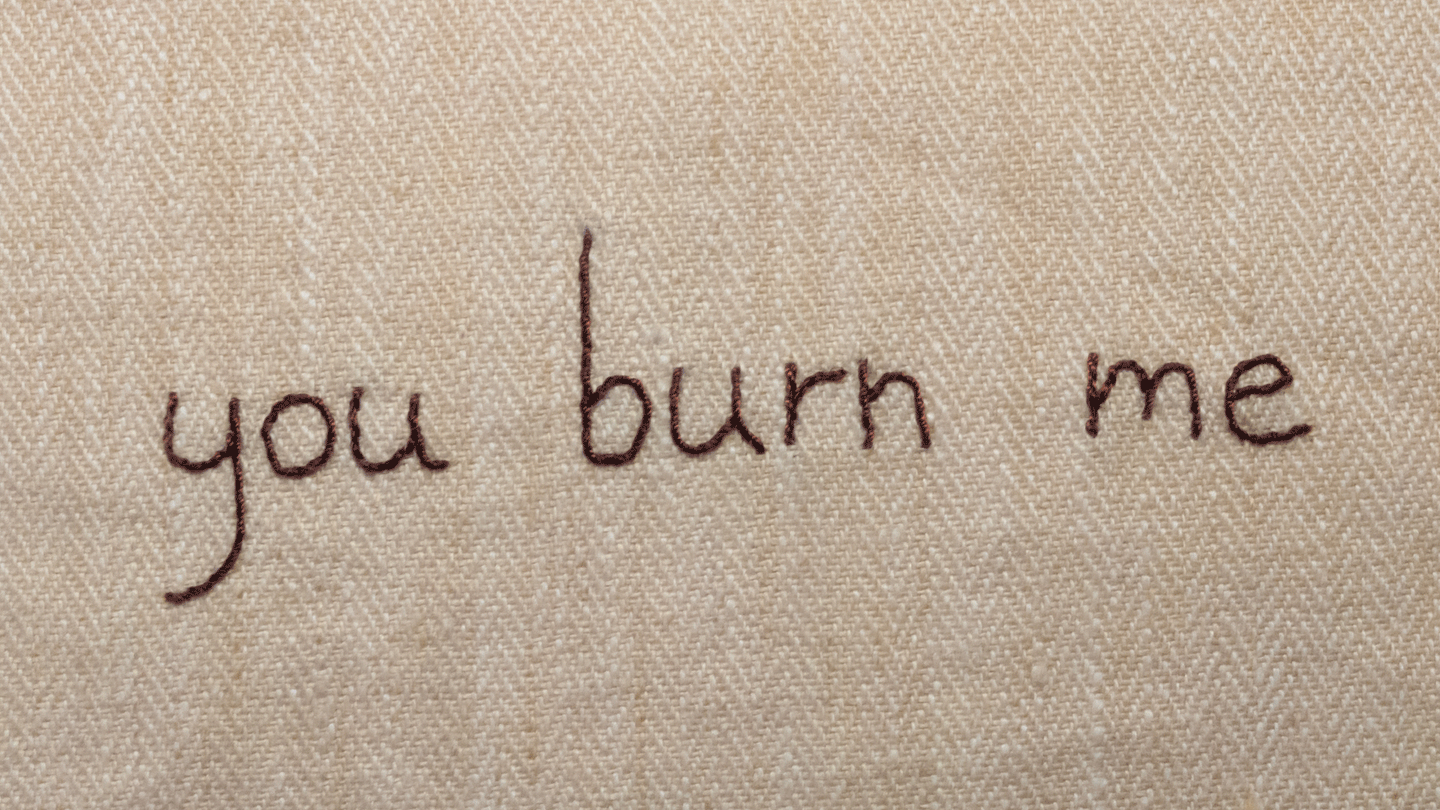 you burn me